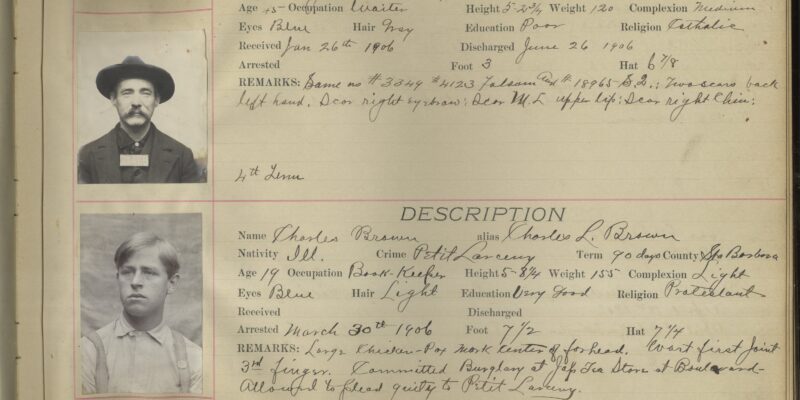 Age 45 Occupation Waiter Height 5-2¼ Weight 120 Complexion Medium
Eyes Blue Hair Gray Education Poor Religion Catholic
Received Jan 26th 1906 Discharged June 26 1906
Arrested Foot 3 Hat 6 7/8
REMARKS: Same as # 3349 # 4123 Folsom # 18965 S.Q.; Two scars back
left hand. Scar right eyebrow; Scar M.L upper lip; Scar right Chin;
4th Term
DESCRIPTION
Name Charles Brown alias Charles L. Brown
Nativity Ill. Crime Petit Larceny Term 90 days County Sta Barbara
Age 19 Occupation Book-Keeper Height 5-8¾ Weight 155 Complexion Light
Eyes Blue Hair Light Education Very Good Religion Protestant
Received Discharged
Arrested March 30th 1906 Foot 7 1/2 Hat 7 1/4
REMARKS: Large Chicken-Pox Mark Center of forhead. Wart first Joint
3rd finger. Committed Burglary at Jap Tea Store at Boulevard-
Allowed to plead guilty to Petit Larceny.